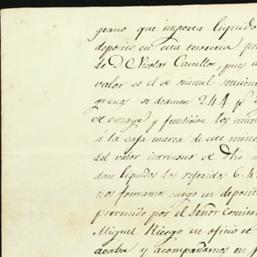 grano que importa liquido
deposito en esta tesoreria p
de D. Nicolas Cavillor, pues el
valor es el de seismil seiscien
grano se deducen 244 p
de ensaye y fundision los mism
á la casa marca de este mine
del valor intrinseco de dho
dan liquidos los referidos 6.4
nos formamos cargo en deposit
prevenido por el Señor Comisa
Miguel Riesgo en oficio de
acaba y acompañamos en p